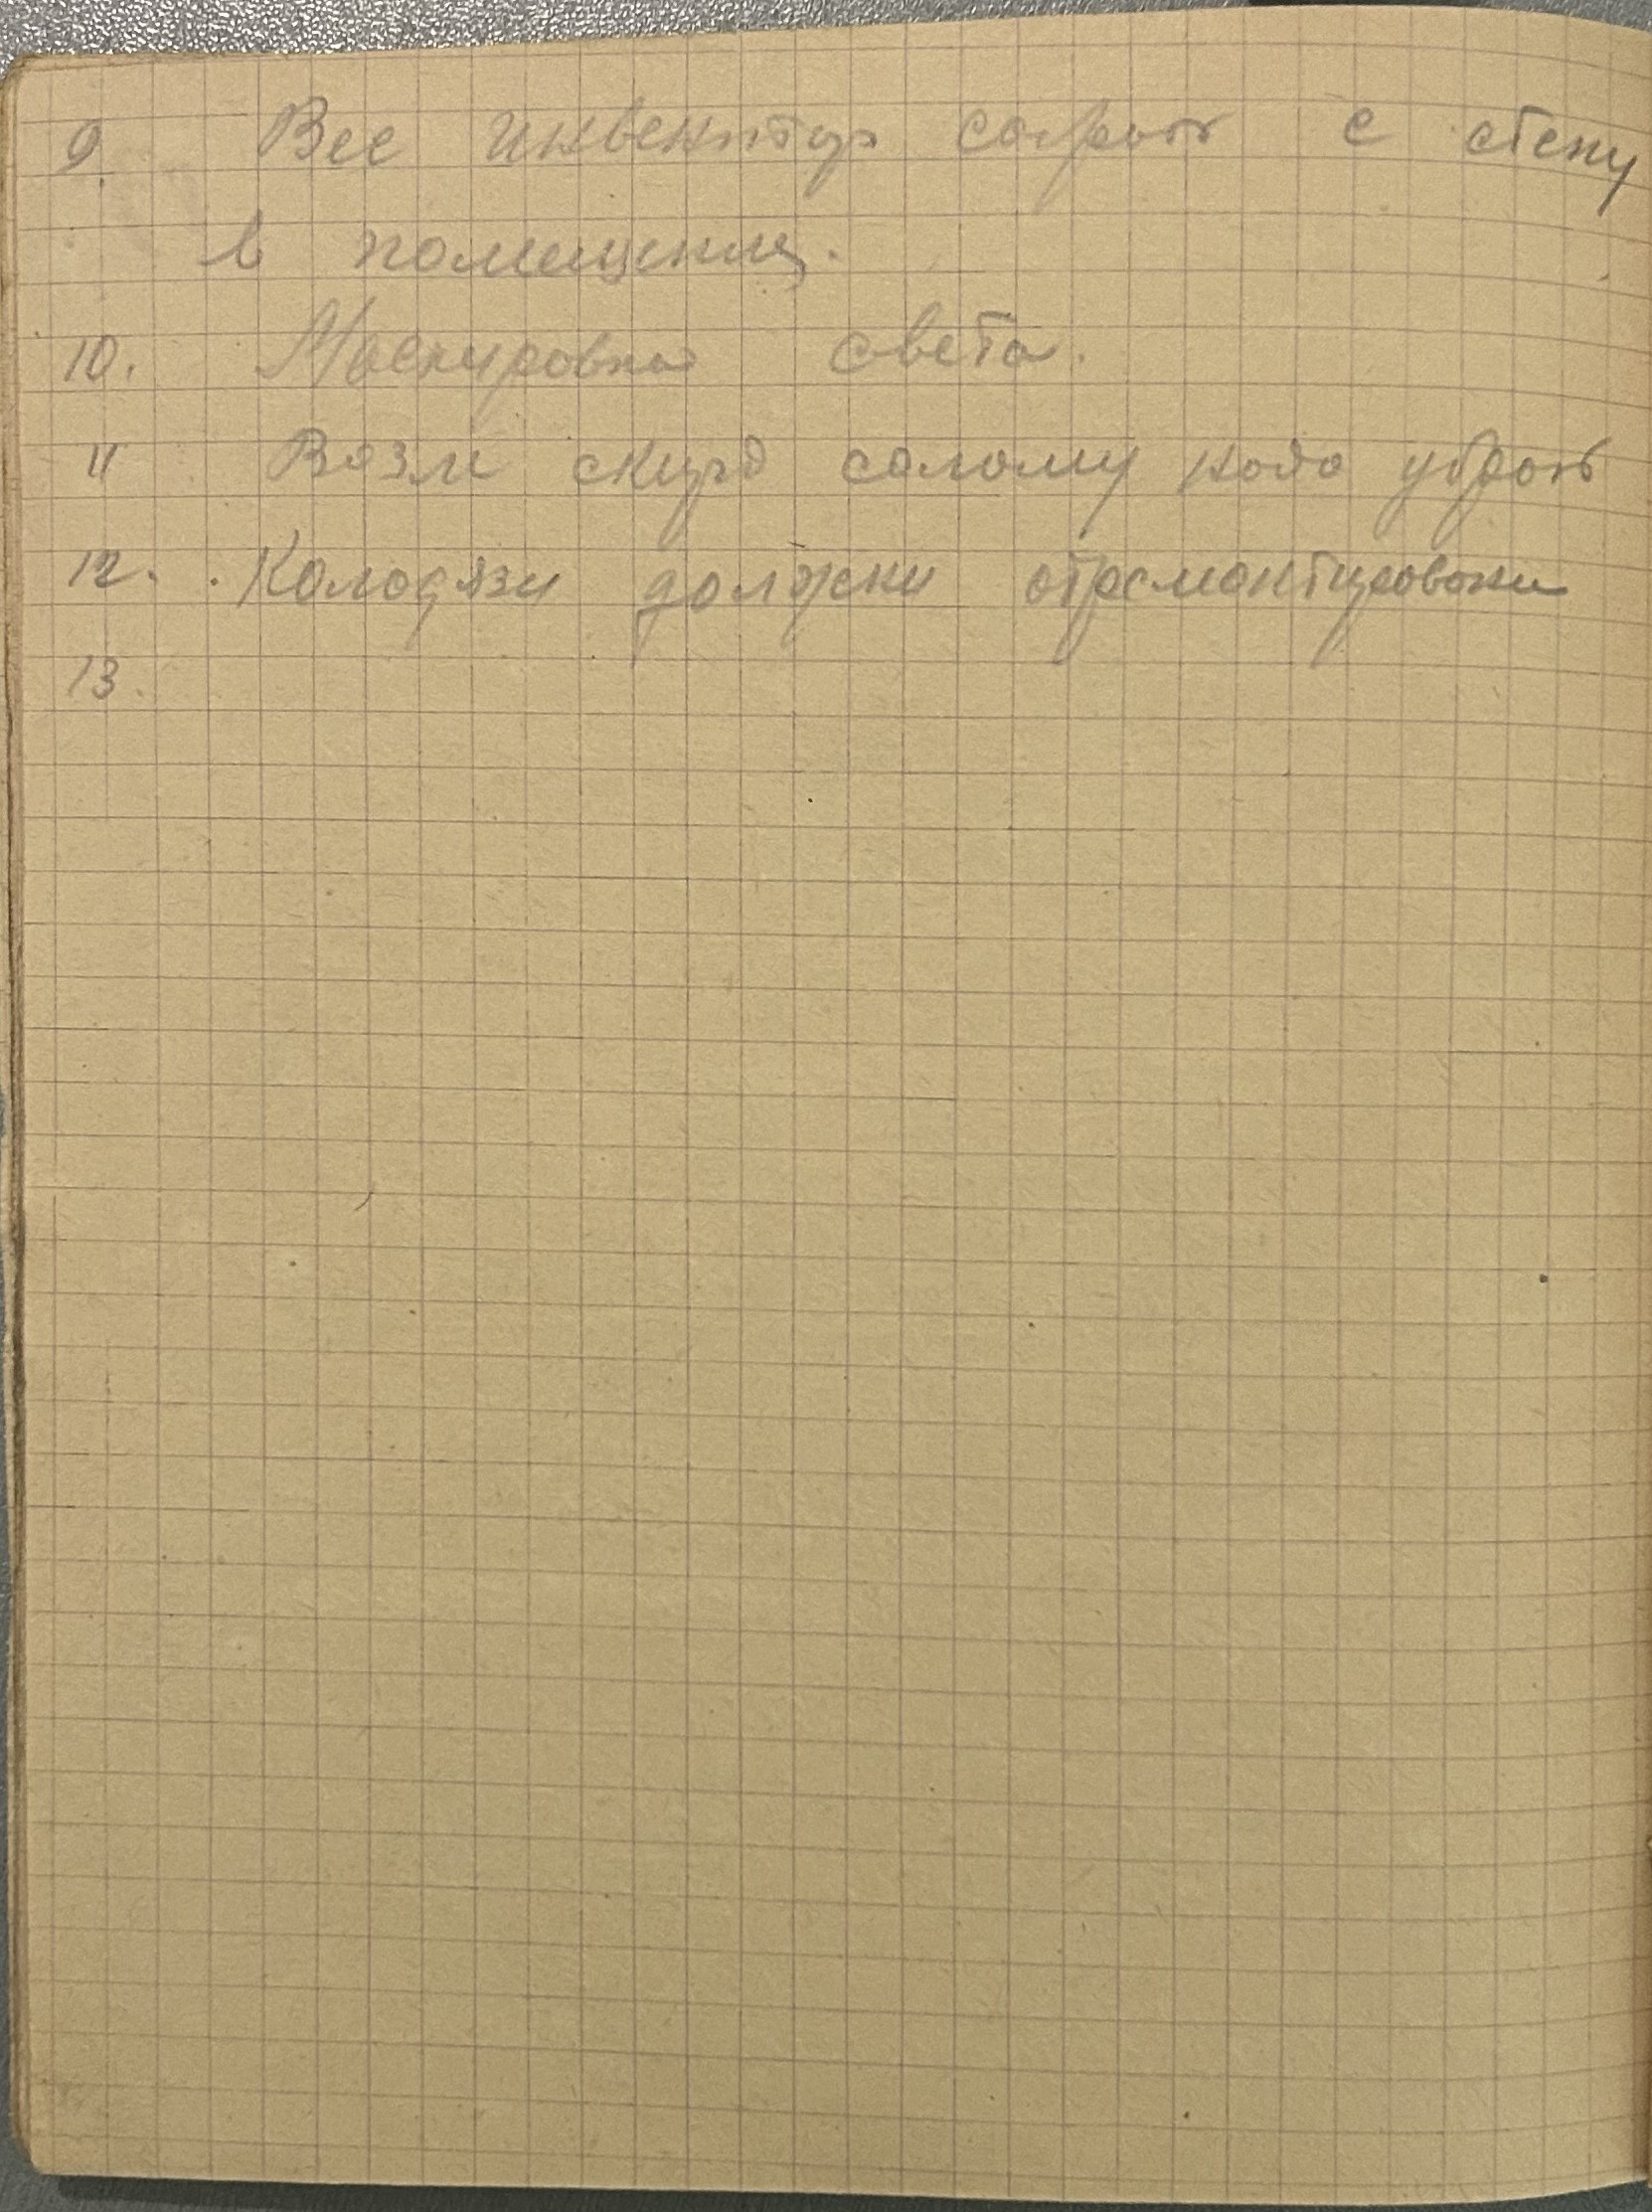 9. Все инвентар собрать с стену
в помещение.
10. Маскировка света.
11 Возли скирд салому надо убрать
12. Колодязи должни отремонтировани
13.